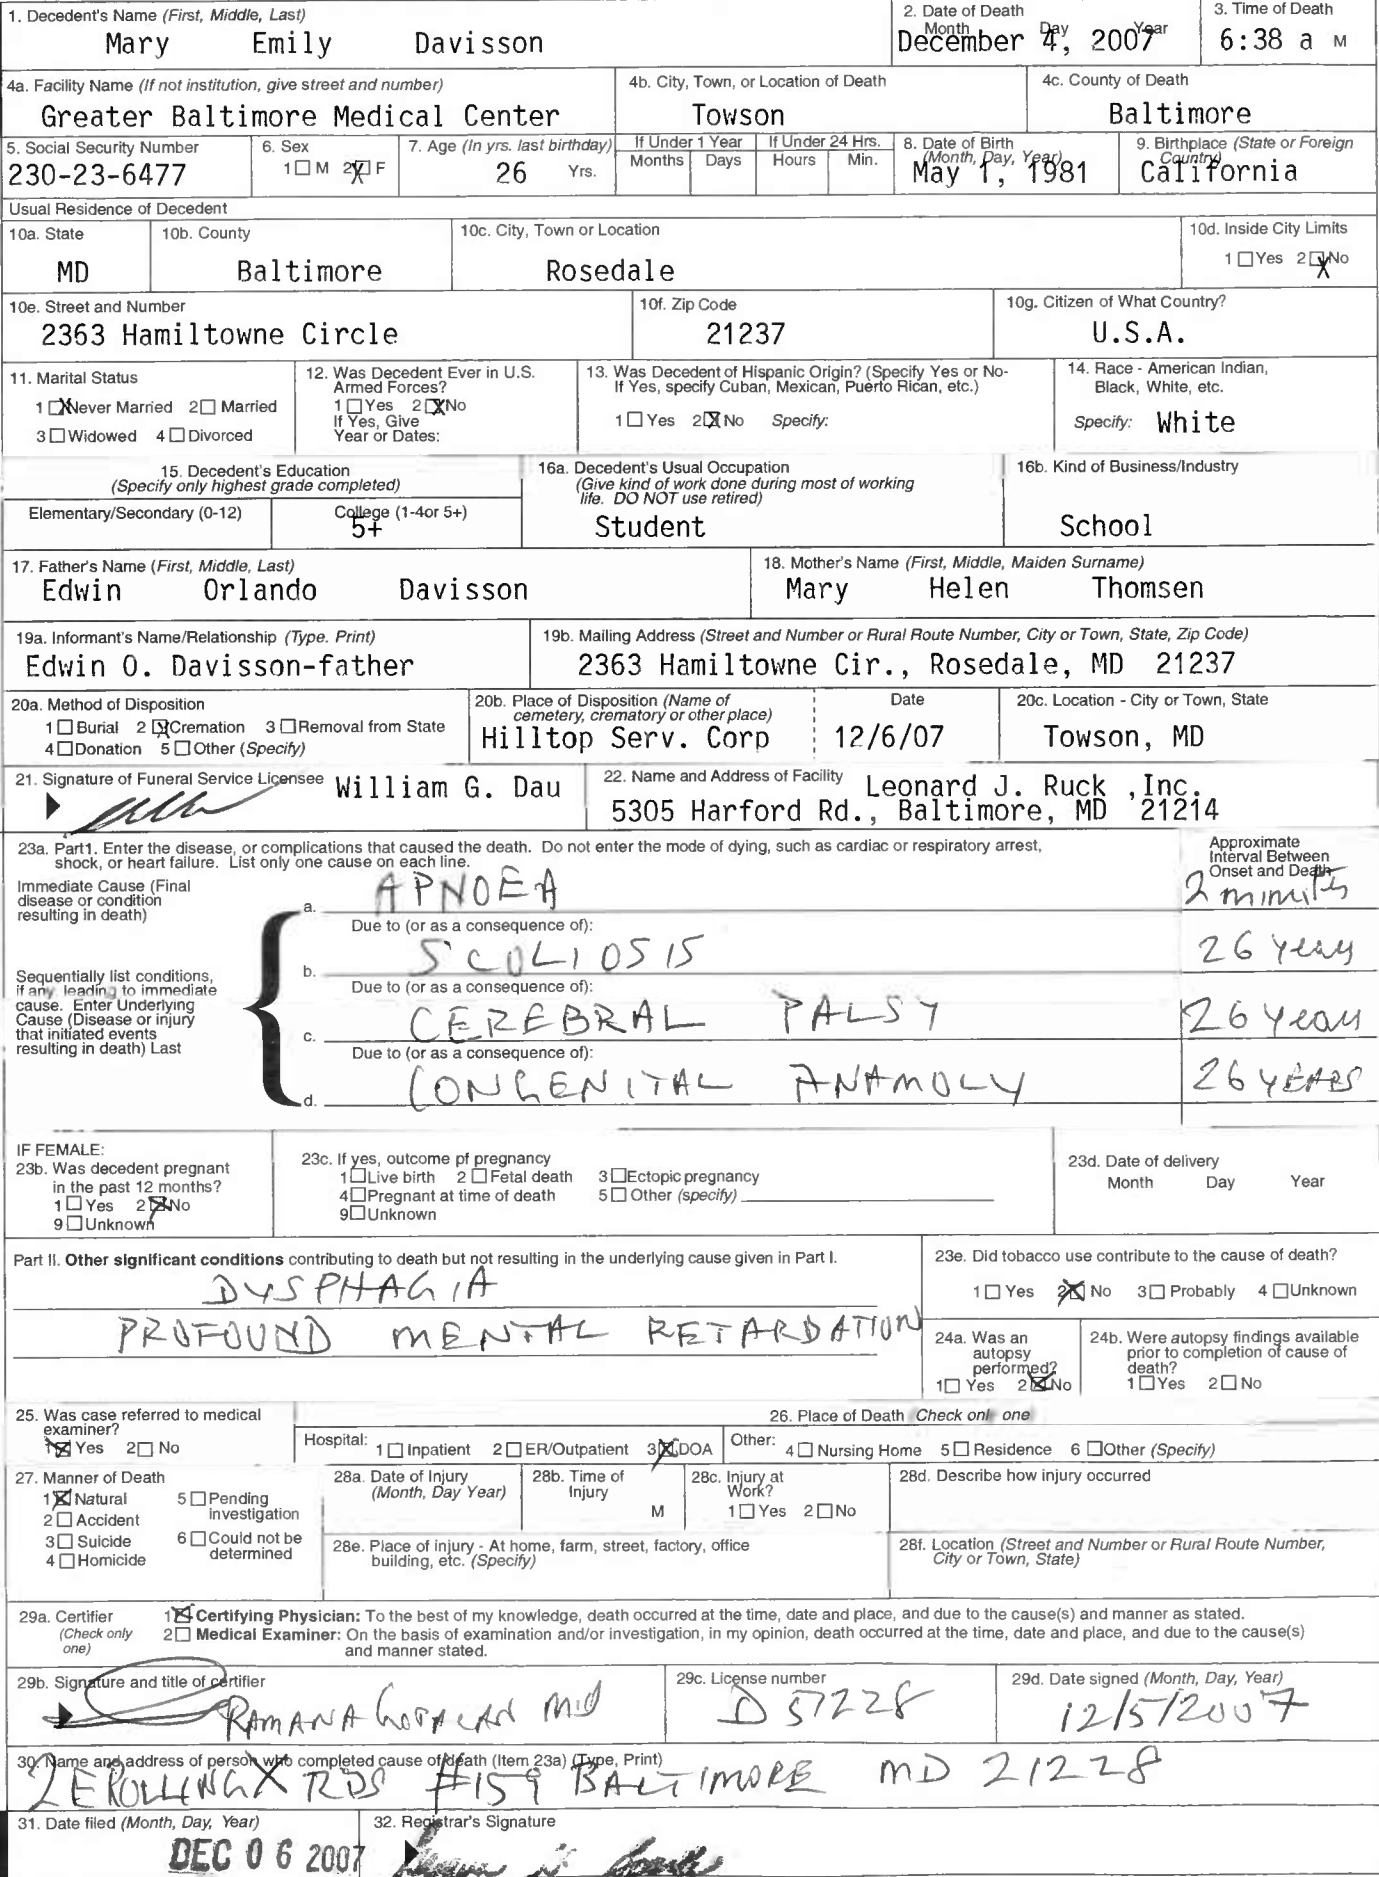 1. Decedent's Name (First, Middle, Last)
Mary Emily Davisson
2. Date of Death
Month Day Year
December 4, 2007
3. Time of Death
6:38 a M
4a. Facility Name (If not institution, give street and number)
Greater Baltimore Medical Center
4b. City, Town, or Location of Death
Towson
4c. County of Death
Baltimore
5. Social Security Number
230-23-6477
6. Sex
1 ☐ M 2 ☒ F
7. Age (In yrs. last birthday)
26 Yrs.
If Under 1 Year
Months Days
If Under 24 Hrs.
Hours Min.
8. Date of Birth
(Month, Day, Year)
May 1, 1981
9. Birthplace (State or Foreign
Country)
California
Usual Residence of Decedent
10a. State
MD
10b. County
Baltimore
10c. City, Town or Location
Rosedale
10d. Inside City Limits
1 ☐ Yes 2 ☒ No
10e. Street and Number
2363 Hamiltowne Circle
10f. Zip Code
21237
10g. Citizen of What Country?
U.S.A.
11. Marital Status
1 ☒ Never Married 2 ☐ Married
3 ☐ Widowed 4 ☐ Divorced
12. Was Decedent Ever in U.S.
Armed Forces?
1 ☐ Yes 2 ☒ No
If Yes, Give
Year or Dates:
13. Was Decedent of Hispanic Origin? (Specify Yes or No-
If Yes, specify Cuban, Mexican, Puerto Rican, etc.)
1 ☐ Yes 2 ☒ No Specify:
14. Race - American Indian,
Black, White, etc.
Specify: White
15. Decedent's Education
(Specify only highest grade completed)
Elementary/Secondary (0-12)
College (1-4or 5+)
5+
16a. Decedent's Usual Occupation
(Give kind of work done during most of working
life. DO NOT use retired)
Student
16b. Kind of Business/Industry
School
17. Father's Name (First, Middle, Last)
Edwin Orlando Davisson
18. Mother's Name (First, Middle, Maiden Surname)
Mary Helen Thomsen
19a. Informant's Name/Relationship (Type. Print)
Edwin O. Davisson-father
19b. Mailing Address (Street and Number or Rural Route Number, City or Town, State, Zip Code)
2363 Hamiltowne Cir., Rosedale, MD 21237
20a. Method of Disposition
1 ☐ Burial 2 ☒ Cremation 3 ☐ Removal from State
4 ☐ Donation 5 ☐ Other (Specify)
20b. Place of Disposition (Name of
cemetery, crematory or other place)
Hilltop Serv. Corp
Date
12/6/07
20c. Location - City or Town, State
Towson, MD
21. Signature of Funeral Service Licensee
William G. Dau
22. Name and Address of Facility
Leonard J. Ruck ,Inc.
5305 Harford Rd., Baltimore, MD 21214
23a. Part1. Enter the disease, or complications that caused the death. Do not enter the mode of dying, such as cardiac or respiratory arrest,
shock, or heart failure. List only one cause on each line.
Approximate
Interval Between
Onset and Death
Immediate Cause (Final
disease or condition
resulting in death)
a. APNOEA 2 minutes
Due to (or as a consequence of):
b. SCOLIOSIS 26 years
Sequentially list conditions,
if any, leading to immediate
cause. Enter Underlying
Cause (Disease or injury
that initiated events
resulting in death) Last
Due to (or as a consequence of):
c. CEREBRAL PALSY 26 years
Due to (or as a consequence of):
d. CONGENITAL ANAMOLY 26 YEARS
IF FEMALE:
23b. Was decedent pregnant
in the past 12 months?
1 ☐ Yes 2 ☒ No
9 ☐ Unknown
23c. If yes, outcome pf pregnancy
1 ☐ Live birth 2 ☐ Fetal death 3 ☐ Ectopic pregnancy
4 ☐ Pregnant at time of death 5 ☐ Other (specify)
9 ☐ Unknown
23d. Date of delivery
Month Day Year
Part II. Other significant conditions contributing to death but not resulting in the underlying cause given in Part I.
DYSPHAGIA
PROFOUND MENTAL RETARDATION
23e. Did tobacco use contribute to the cause of death?
1 ☐ Yes 2 ☒ No 3 ☐ Probably 4 ☐ Unknown
24a. Was an
autopsy
performed?
1 ☐ Yes 2 ☒ No
24b. Were autopsy findings available
prior to completion of cause of
death?
1 ☐ Yes 2 ☐ No
25. Was case referred to medical
examiner?
1 ☒ Yes 2 ☐ No
26. Place of Death (Check only one
Hospital: 1 ☐ Inpatient 2 ☐ ER/Outpatient 3 ☒ DOA
Other: 4 ☐ Nursing Home 5 ☐ Residence 6 ☐ Other (Specify)
27. Manner of Death
1 ☒ Natural 5 ☐ Pending
investigation
2 ☐ Accident
3 ☐ Suicide 6 ☐ Could not be
determined
4 ☐ Homicide
28a. Date of Injury
(Month, Day Year)
28b. Time of
Injury
M
28c. Injury at
Work?
1 ☐ Yes 2 ☐ No
28d. Describe how injury occurred
28e. Place of injury - At home, farm, street, factory, office
building, etc. (Specify)
28f. Location (Street and Number or Rural Route Number,
City or Town, State)
29a. Certifier
(Check only
one)
1 ☒ Certifying Physician: To the best of my knowledge, death occurred at the time, date and place, and due to the cause(s) and manner as stated.
2 ☐ Medical Examiner: On the basis of examination and/or investigation, in my opinion, death occurred at the time, date and place, and due to the cause(s)
and manner stated.
29b. Signature and title of certifier
RAMANA GOPALAN MD
29c. License number
D 57228
29d. Date signed (Month, Day, Year)
12/5/2007
30. Name and address of person who completed cause of death (Item 23a) (Type, Print)
2 E ROLLING X RDS #159 BALTIMORE MD 21228
31. Date filed (Month, Day, Year)
DEC 06 2007
32. Registrar's Signature